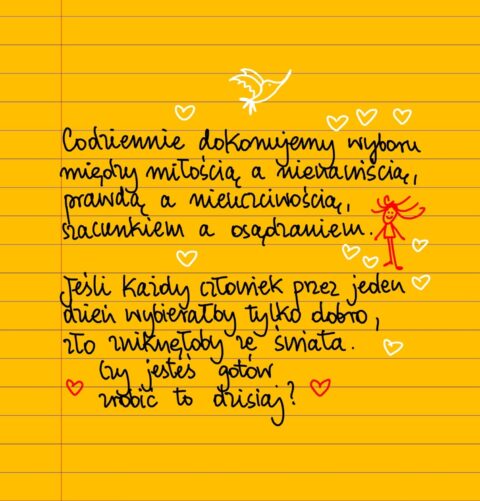 Codziennie dokonujemy wyboru
między miłością a nienawiścią,
prawdą a nieuczciwością,
szacunkiem a osądzaniem.
Jeśli każdy człowiek przez jeden
dzień wybierałby tylko dobro,
zło zniknęłoby ze świata.
Czy jesteś gotów
zrobić to dzisiaj?